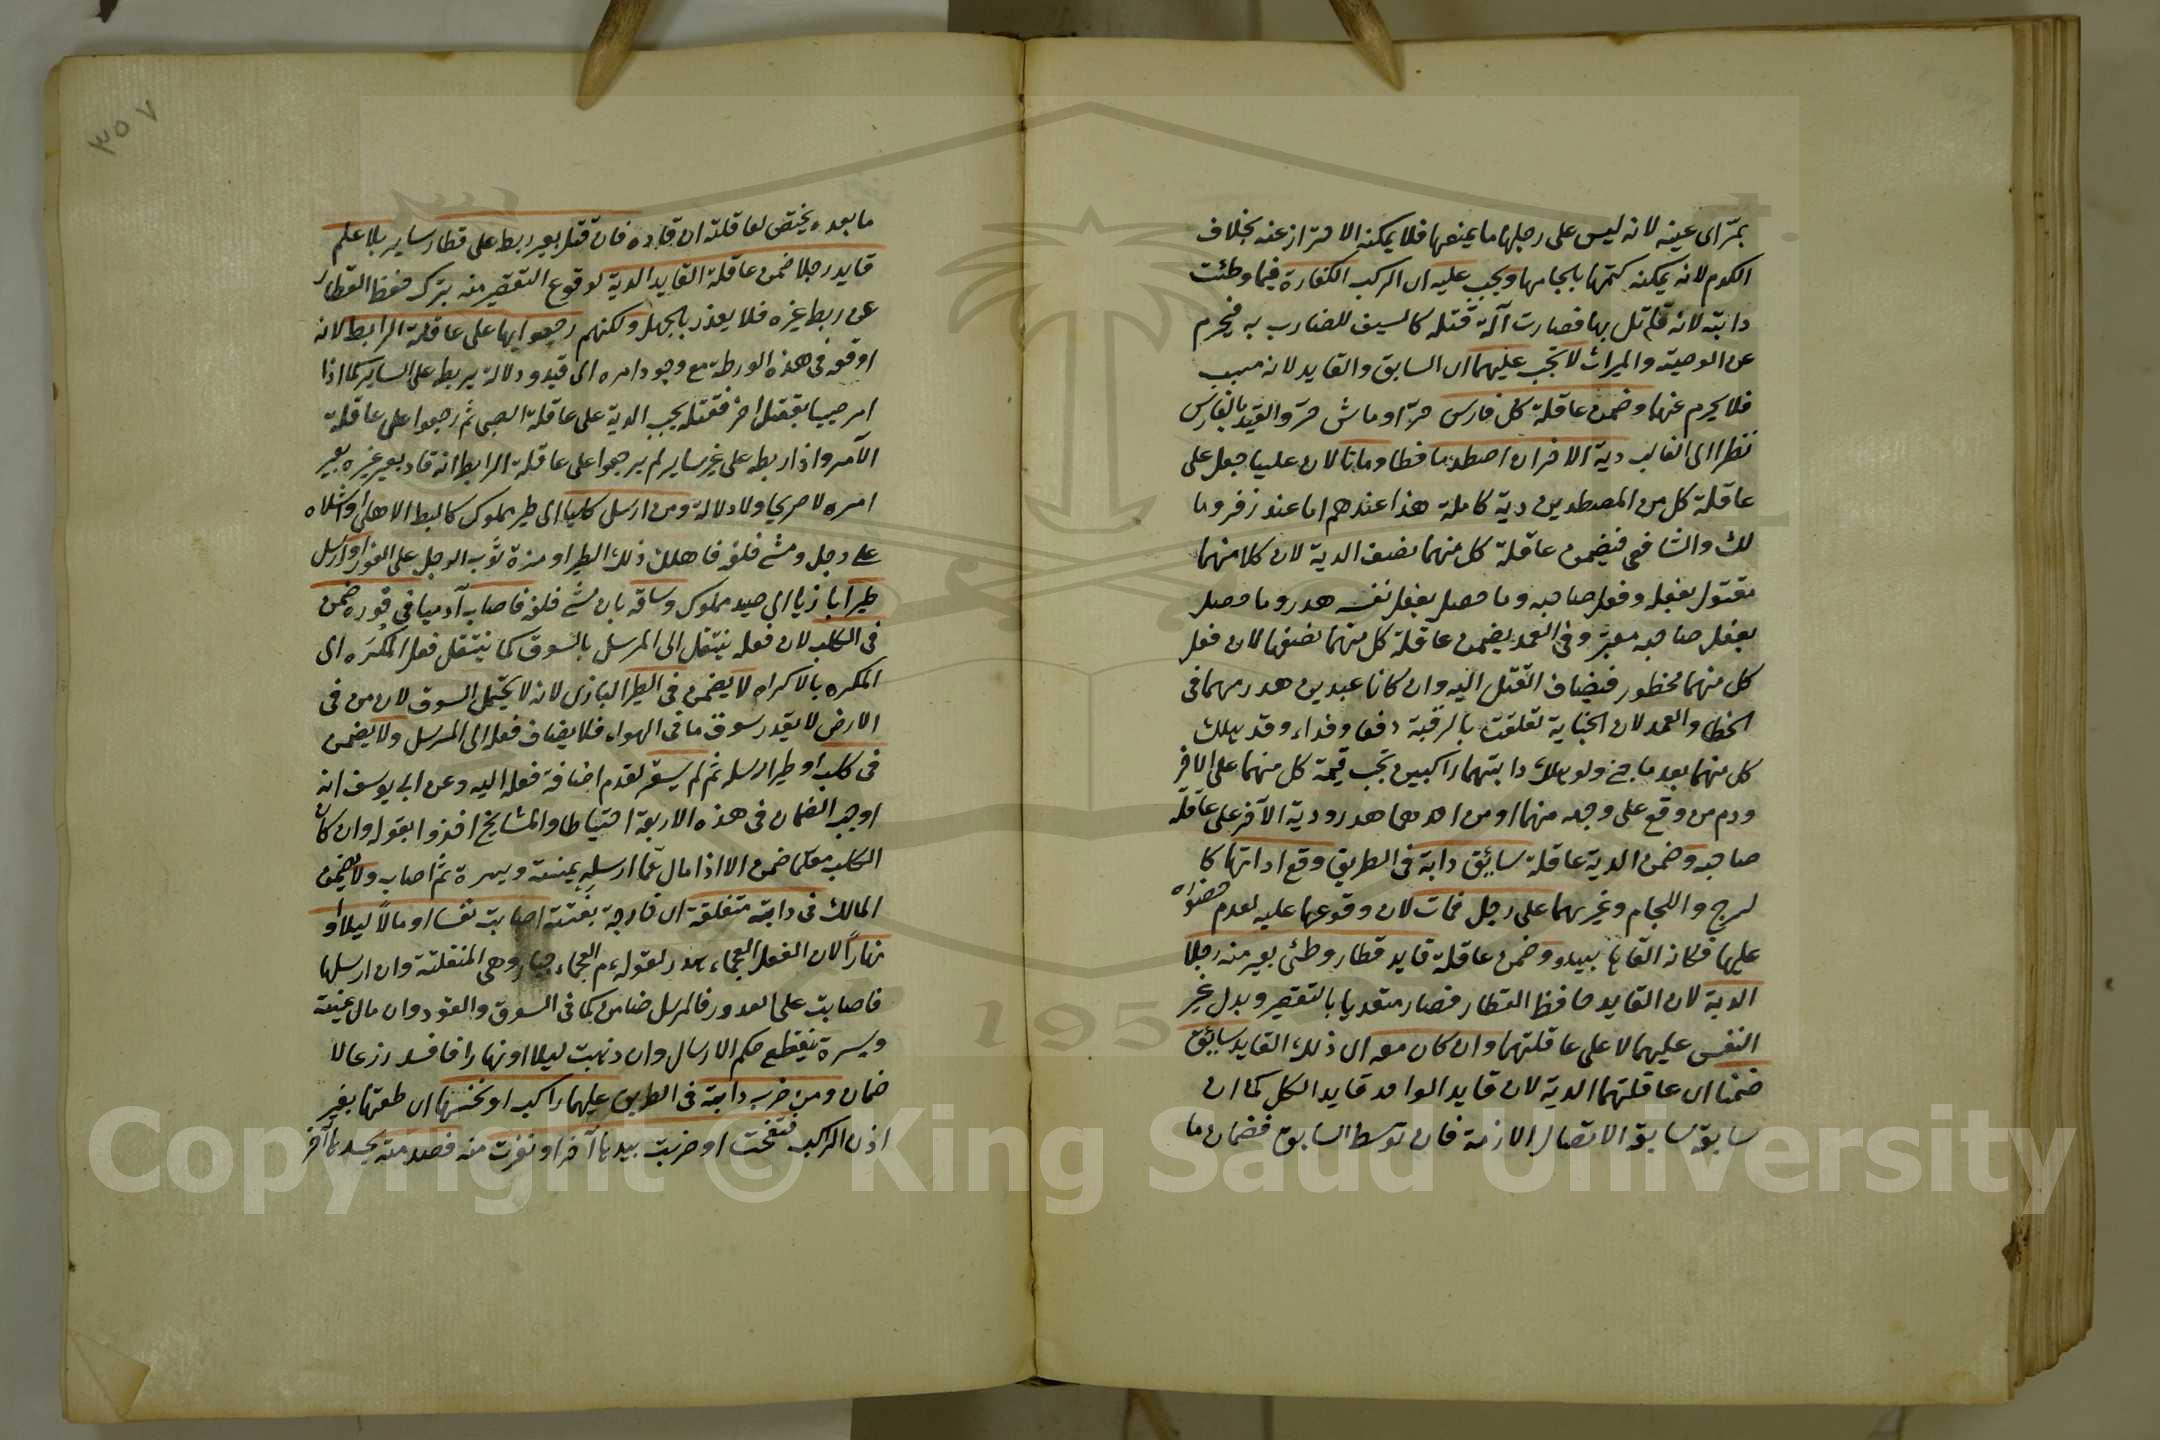 بمرأى عينه لانه ليس على رجلها ما يمنعها فلا يمكنه الاحتراز عنه بخلاف
الكدم لانه يمكنه كبحها بلجامها ويجب عليه اى الراكب الكفارة فيما وطئت
دابته لانه قاتل بها فصارت آلة قتله كالسيف للضارب به فيحرم
عن الوصية والميراث لا تجب عليهما اى السايق والقايد لانه مسبب
فلا يحرم عنهما وضمن عاقلة كل فارس حرّ او ماش حرّ والقيد بالفارس
نظرا الى الغالب دية الاخر ان اصطدما خطا وماتا لان عليا جعل على
عاقلة كل من المصطدمين دية كاملة هذا عندهم اما عند زفر وما
لك والشافعى فيضمن عاقلة كل منهما نصف الدية لان كلا منهما
مقتول بفعله وفعل صاحبه وما حصل بفعل نفسه هدر وما حصل
بفعل صاحبه معتبر وفى العمد يضمن عاقلة كل منهما نصفها لان فعل
كل منهما محظور فيضاف القتل اليه وان كانا عبدين هدر دمهما فى
الخطا والعمد لان الجناية تعلقت بالرقبة دفعا وفداء وقد هلك
كل منهما بعد ما جنى ولو هلك دابتهما راكبين تجب قيمة كل منهما على الاخر
ودم من وقع على وجهه منهما او من احدهما هدر ودية الآخر على عاقلة
صاحبه وضمن الدية عاقلة سائق دابة فى الطريق وقع اداتها كا
لسرج واللجام وغيرهما على رجل فمات لان وقوعها عليه لعدم
عليها فكانه القاها بيده وضمن عاقلة قايد قطار وطئ بعير منه رجلا
الدية لان القايد حافظ القطار فصار متعديا بالتقصير وبدل غير
النفس عليهما لا على عاقلتهما وان كان معه اى ذلك القايد سائق
ضمنا اى عاقلتهما الدية لان قايد الواحد قايد الكل كما ان
سايق سايق الاتصال الازمة فان توسط السايق فضمان ما
٣٥٧
ما بعده يختص لعاقلته ان قاده فان قتل بعير ربط على قطار ساير بلا علم
قايد رجلا ضمن عاقلة القايد الدية لوقوع التقصير منه بترك حفظ القطار
عن ربط غيره فلا يعذر بالجهل ولكنهم رجعوا بها على عاقلة الرابط لانه
اوقعه فى هذه الورطة مع وجود امره الى قيد ودلالة يربط على الساير كما اذا
امر صبيا بقتل اخر فقتله يجب الدية على عاقلة الصبى ثم رجعوا على عاقلة
الآمر واذا ربطه على غير ساير لم يرجعوا على عاقلة الرابط انه قاد بعير غيره بغير
امره لا صريحا ولا دلالة ومن ارسل كلبا الى طير مملوك كالبط الاهلى واشلاه
على رجل ومشى خلفه فاهلك ذلك الطير او مزق ثوب الرجل على الفور او ارسل
طيرا بازيا الى صيد مملوك وساقه بان مشى خلفه فاصاب آدميا فى فوره ضمن
فى الكلب لان فعله ينتقل الى المرسل بالسوق كما ينتقل فعل المكرَه الى
المكره بالاكراه لا يضمن فى الطير البازى لانه لا يحتمل السوق لان من فى
الارض لا يقدر سوق ما فى الهواء فلا يضاف فعله الى المرسل ولا يضمن
فى كلب او طير ارسله ثم لم يسقه لعدم اضافة فعله اليه وعن ابى يوسف انه
اوجب الضمان فى هذه الاربعة احتياطا والمشايخ اخذوا بقوله وان كان
الكلب معلما ضمن الا اذا مال عما ارسله يمنة ويسرة ثم اصاب ولا يضمن
المالك فى دابة متفلتة اى خارجة بغتة اصابت نفسا او مالًا ليلا او
نهارًا لان الفعل العجماء هدر لقوله عم العجماء جبار وهى المنفلتة وان ارسلها
فاصابت على الفور فالمرسل ضامن كما فى السوق والقود وان مال يمنة
ويسرة ينقطع حكم الارسال وان ذهبت ليلا او نهارا فافسد زرعا لا
ضمان ومن ضرب دابة فى الطريق عليها راكب او نخسها اى طعنها بغير
اذن الراكب فنفحت او ضربت بيدها آخر او نفرت منه فصدمته بجسدها آخر
Copyright © King Saud University
195